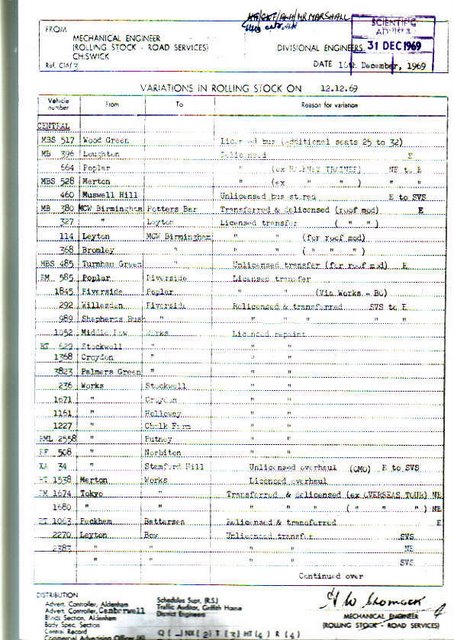 FROM
MECHANICAL ENGINEER
(ROLLING STOCK - ROAD SERVICES)
CHISWICK
DIVISIONAL ENGINEERS
SCIENTIFIC
ADVISER
31 DEC 1969
DATE December, 1969
VARIATIONS IN ROLLING STOCK ON 12.12.69
Vehicle number From To Reason for variance
CENTRAL
MBS 517 Wood Green Licensed bus (additional seats 25 to 32)
MB 396 Loughton Delicensed E
664 Poplar (ex TRAINER) NE to E
MBS 528 Merton " (ex " " ) "
460 Muswell Hill Unlicensed bus stored E to SVS
MB 380 MCW Birmingham Potters Bar Transferred & delicensed (roof mod) E
327 " Leyton Licensed transfer ( " " )
114 Leyton MCW Birmingham " " (for roof mod)
368 Bromley " " " ( " " " )
MBS 485 Turnham Green " Unlicensed transfer (for roof mod) E
RM 585 Poplar Riverside Licensed transfer
1845 Riverside Poplar " " (Via Works - BO)
292 Willesden Riverside Relicensed & transferred SVS to E
989 Shepherds Bush " " " " "
1052 Middle Row Works Licensed repaint
RT 629 Stockwell " " "
1368 Croydon " " "
3823 Palmers Green " " "
236 Works Stockwell " "
1671 " Croydon " "
1161 " Holloway " "
1227 " Chalk Farm " "
RML 2558 " Putney " "
RF 508 " Norbiton " "
XA 34 " Stamford Hill Unlicensed overhaul (CMO) E to SVS
RT 1538 Merton Works Licensed overhaul
RM 1674 Tokyo " Transferred & delicensed (ex OVERSEAS TOUR) NE
1680 " " " " " ( " " " ) NE
RT 1063 Peckham Battersea Relicensed & transferred E
2270 Leyton Bow Unlicensed transfer SVS
2383 " " " " NE
" " " " SVS
Continued over
DISTRIBUTION
Advert. Controller, Aldenham
Advert. Controller, Camberwell
Bldg. Section, Aldenham
Body Spec. Section
Central Record
Commercial Advertising Officer
Schedules Supt. (R.S.)
Traffic Auditor, Griffith House
District Engineers
MECHANICAL ENGINEER
(ROLLING STOCK - ROAD SERVICES)